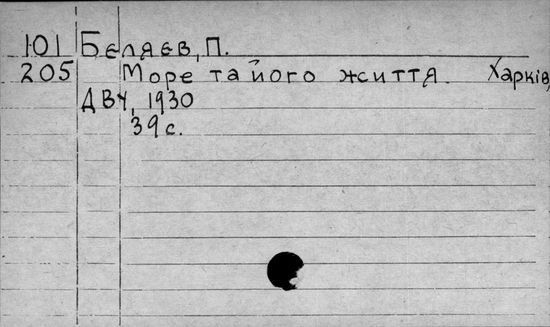 101 Бєляєв, П.
205 Море та його життя. Харків,
ДВУ, 1930
39 с.